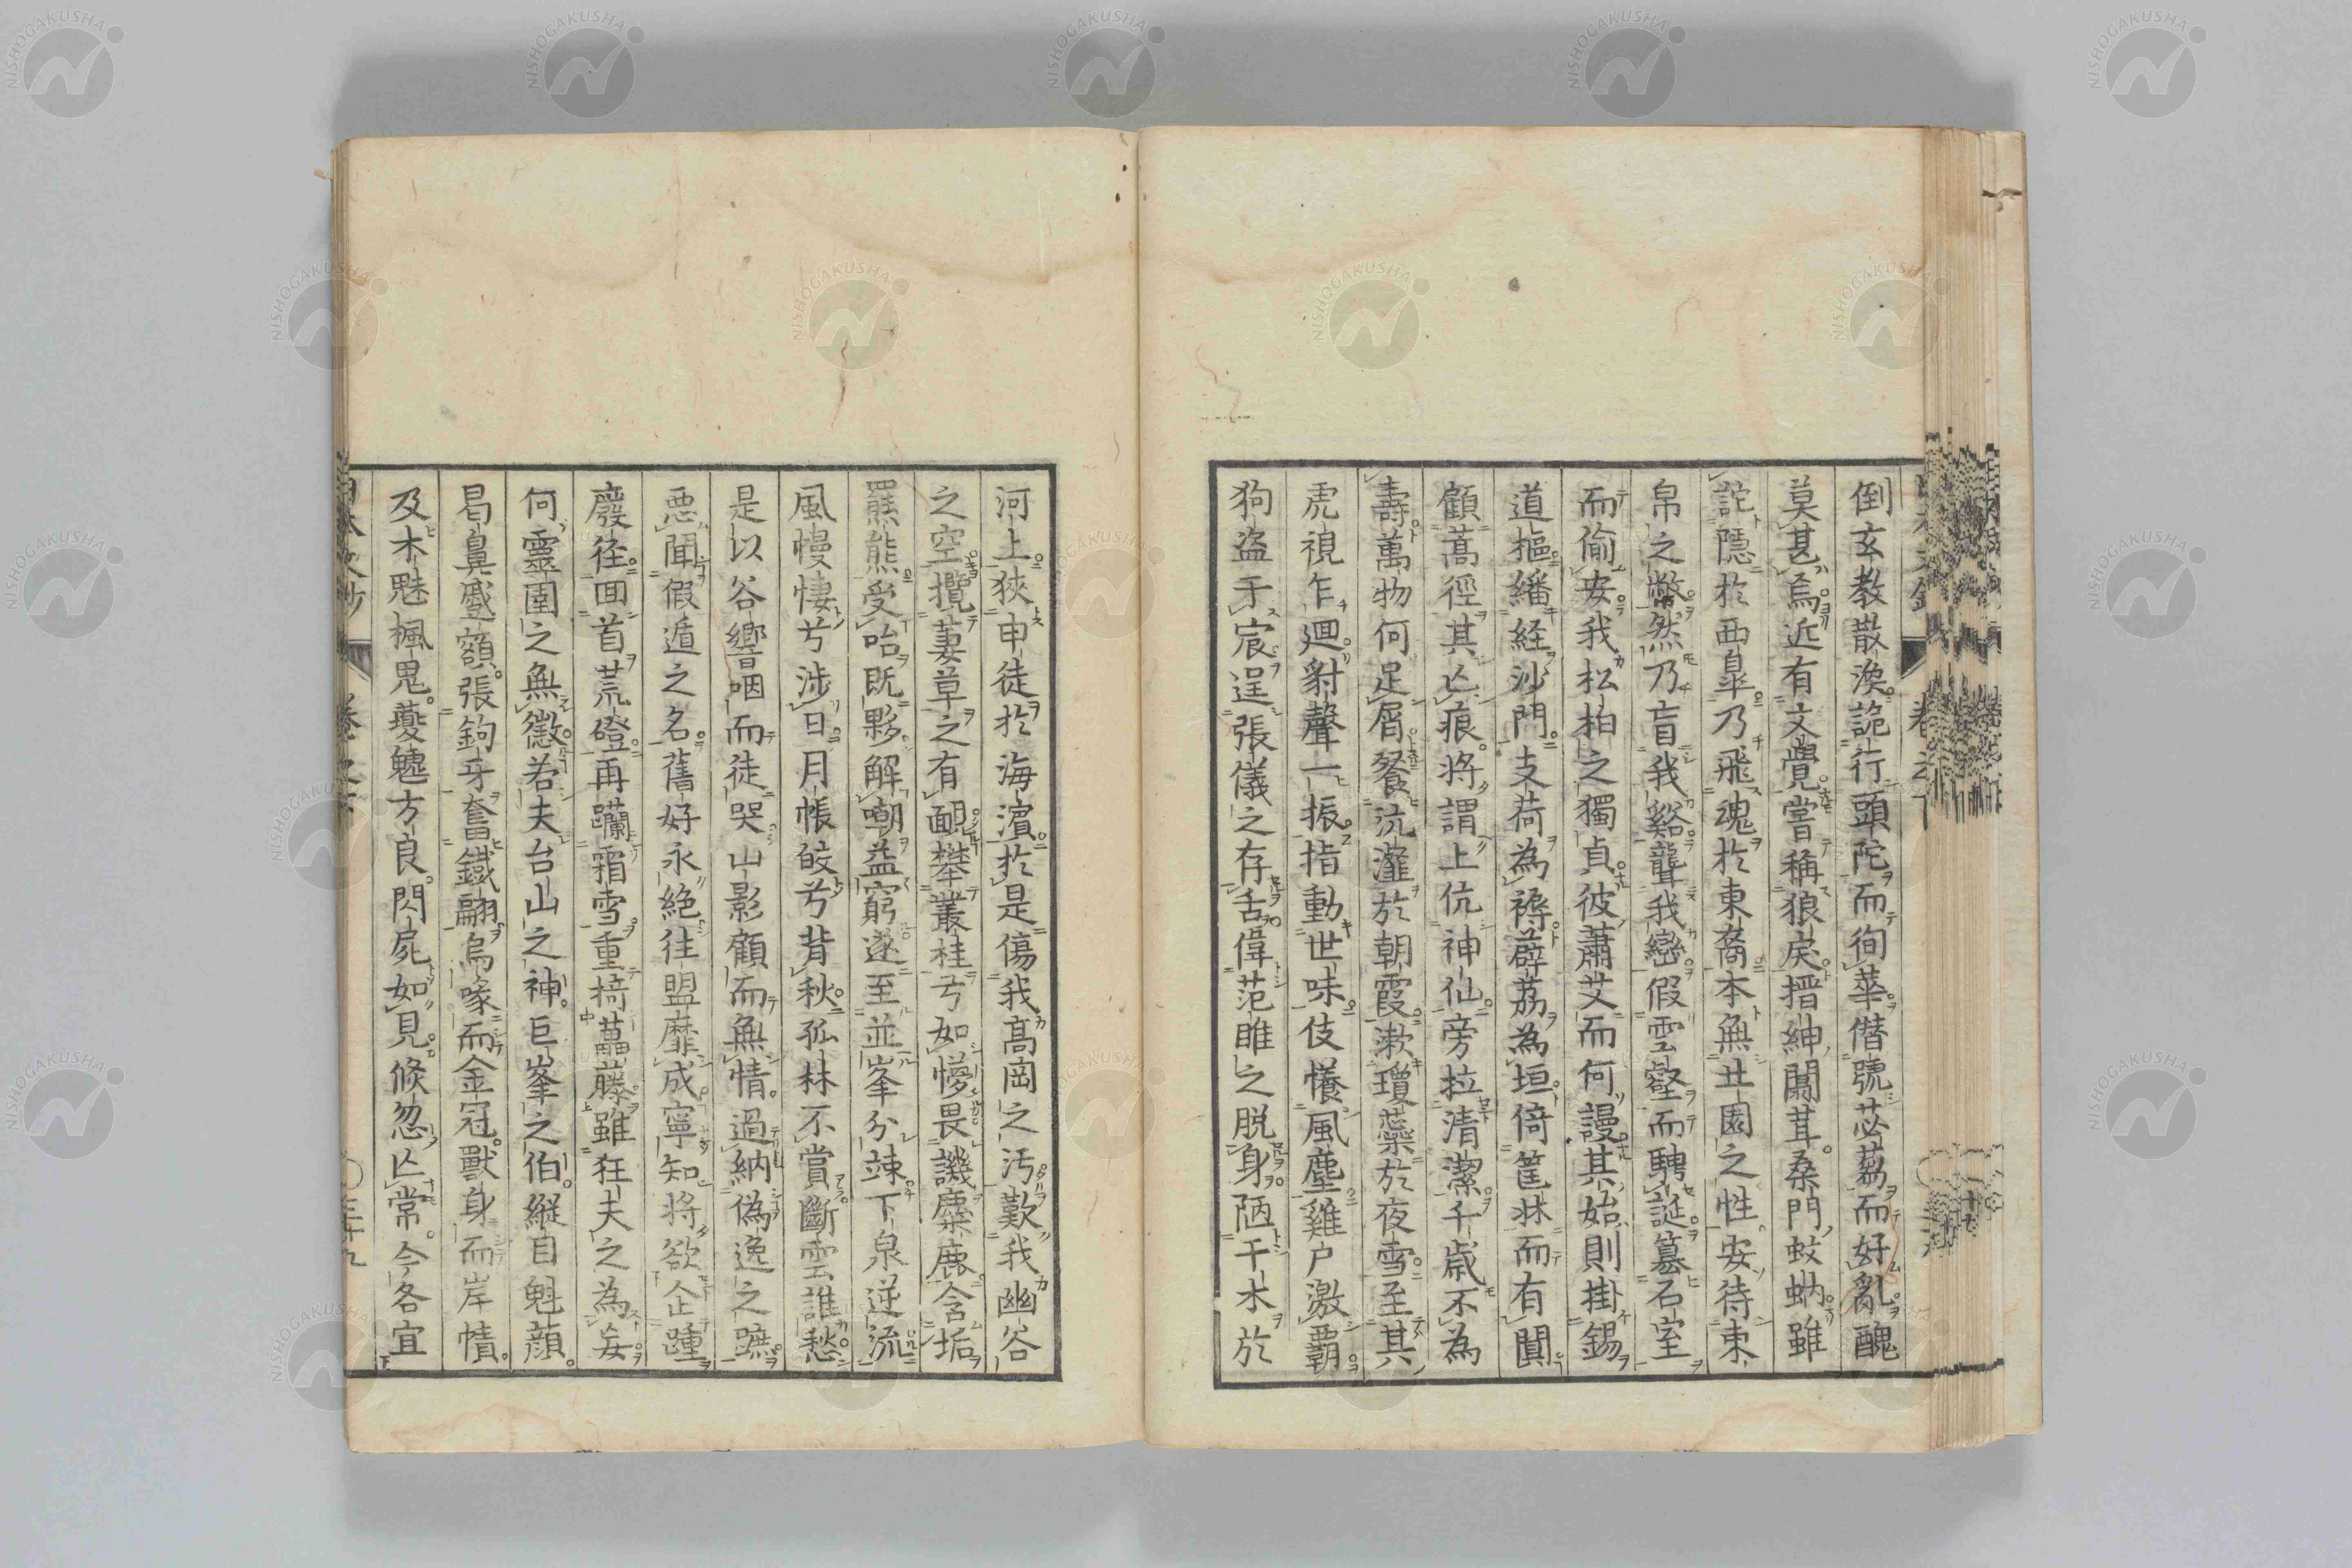 倒玄教散渙詭行頭陀而徇華僭號苾蒭而好亂醜
莫甚焉近有文覺嘗稱狼戾搢紳闒茸桑門蚊蚋雖
託隱於西皐乃飛魂於東裔本無丘園之性安待束
帛之弊然乃盲我谿聾我巒假雲壑而騁誕簒石室
而偷安我松柏之獨貞彼蕭艾而何謾其始則掛錫
道樞繙経沙門支荷為褥薜荔為垣倚筐牀而有闃
顧蒿徑其亾痕將謂上伉神仙旁拉清潔千歳不為
壽萬物何足屑餐沆瀣於朝霞漱瓊蘂於夜雪至其
虎視乍廻豺聲一振指動世味伎懩風塵雞户激覇
狗盗于宸逞張儀之存舌偉范睢之脱身陋干木於
河上狹申徒於海濵於是傷我高岡之汚歎我幽谷
之空攬萋草之有靦攀叢桂兮如懮畏譏麋鹿含垢
羆熊受咍既夥解嘲益窮遂至並峯分竦下泉逆流
風慢悽兮涉日月帳皎兮背秋孤林不賞斷雲誰愁
是以谷響咽而徒哭山影顧而無情過納偽逸之蹠
惡聞假遁之名舊好永絶往盟靡成寧知將欲企踵
廢徃囬首荒磴再躪霜雪重掎藟藤雖狂夫之為妄
何靈圉之無徵若夫台山之神巨峯之伯縱目魁顔
曷鼻蹙額張鉤牙奮鐵翮烏喙而金冠獸身而岸幘
及木魅楓鬼夔魖方良閃屍如見倏忽亾常今各宜
巻之下